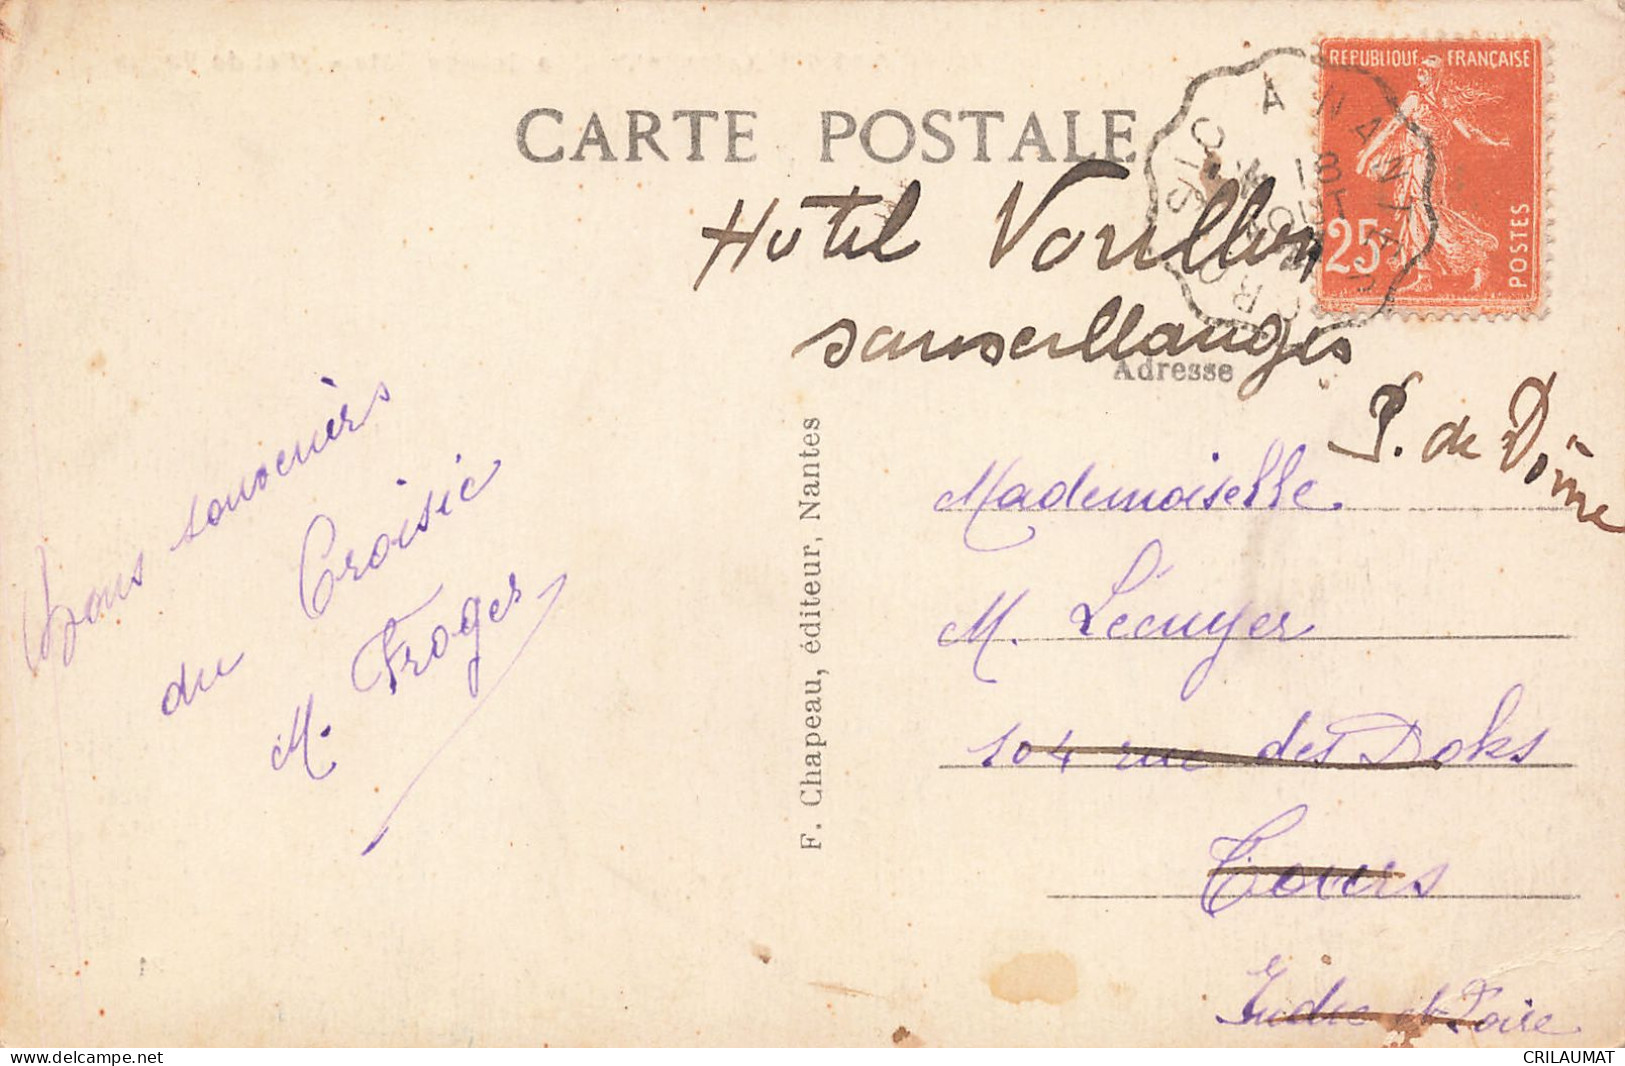 CARTE POSTALE
REPUBLIQUE FRANÇAISE
25c
POSTES
CROISIC A NANTES
18
AOUT
Hotel Voullon
sauxeillanges
Adresse
P. de Dôme
Mademoiselle
M. Lécuyer
104 rue des Doks
Tours
Indre et Loire
Bons souvenirs
du Croisic
M. Froger
F. Chapeau, éditeur, Nantes
CRILAUMAT